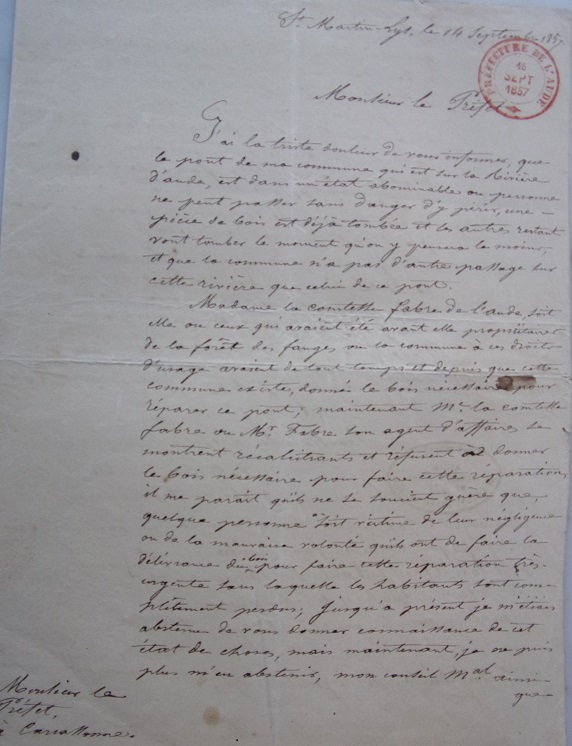 St. Martin-Lys, le 14 Septembre 1857.
PRÉFECTURE DE L'AUDE
16
SEPT
1857
Monsieur le Préfet
J'ai la triste douleur de vous informer, que
le pont de ma commune qui est sur la Rivière
d'aude, est dans un état abominable ou personne
ne peut passer sans danger d'y périr, une
pièce de bois est déjà tombée et les autres restant
vont tomber le moment qu'on y pensera le moins,
et que la commune n'a pas d'autre passage sur
cette rivière que celui de ce pont.
Madame la comtesse fabre de l'aude, soit
elle ou ceux qui avaient été avant elle propriétaires
de la forêt des fanges, ou la commune à ces droits
d'usage avaient de tout temps et depuis que cette
commune existe, donné le bois nécessaire pour
réparer ce pont; maintenant Me. la comtesse
fabre ou Mr. Fabre son agent d'affaires se
montrent récalcitrants et refusent de donner
le bois nécessaire pour faire cette réparation,
il me parait qu'ils ne se soucient guère que
quelque personne soit victime de leur négligence
ou de la mauvaise volonté qu'ils ont de faire la
délivrance du bois pour faire cette réparation très-
urgente sans laquelle les habitants sont com-
plètement perdus; jusqu'a présent je m'étais
abstenu de vous donner connaissance de cet
état de choses, mais maintenant, je ne puis
plus m'en abstenir, mon conseil Mal. ainsi
que
Monsieur le
Préfet,
à Carcassonne.